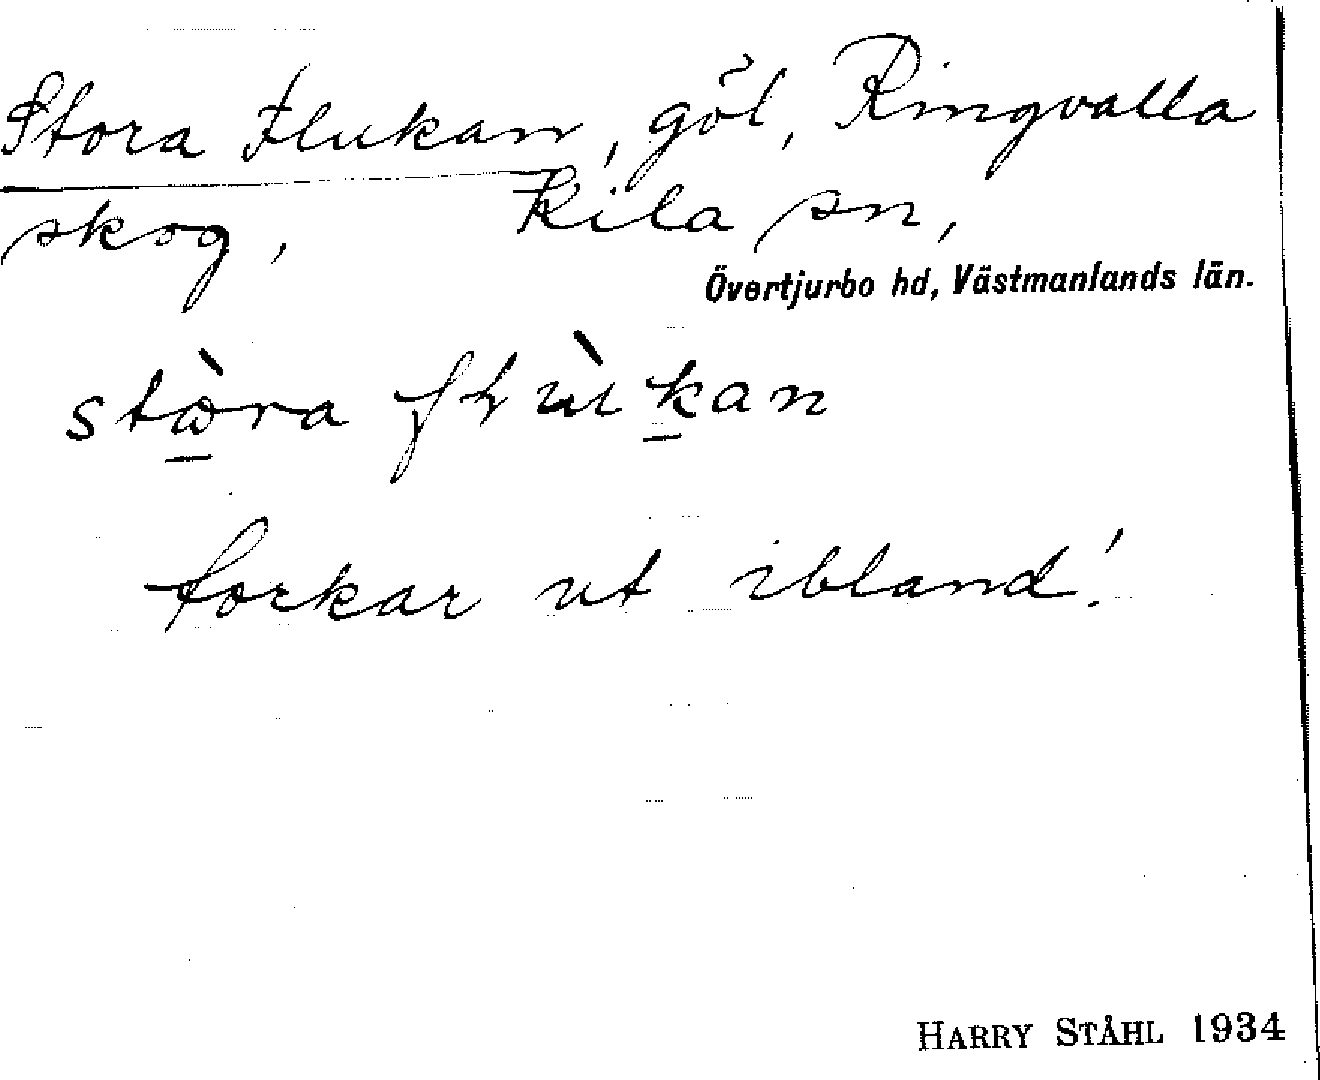 Stora Flukan, göl, Ringvalla
skog, Kila sn,
Övertjurbo hd, Västmanlands län.
stɷ̀ra flùkan
torkar ut ibland!
HARRY STÅHL 1934